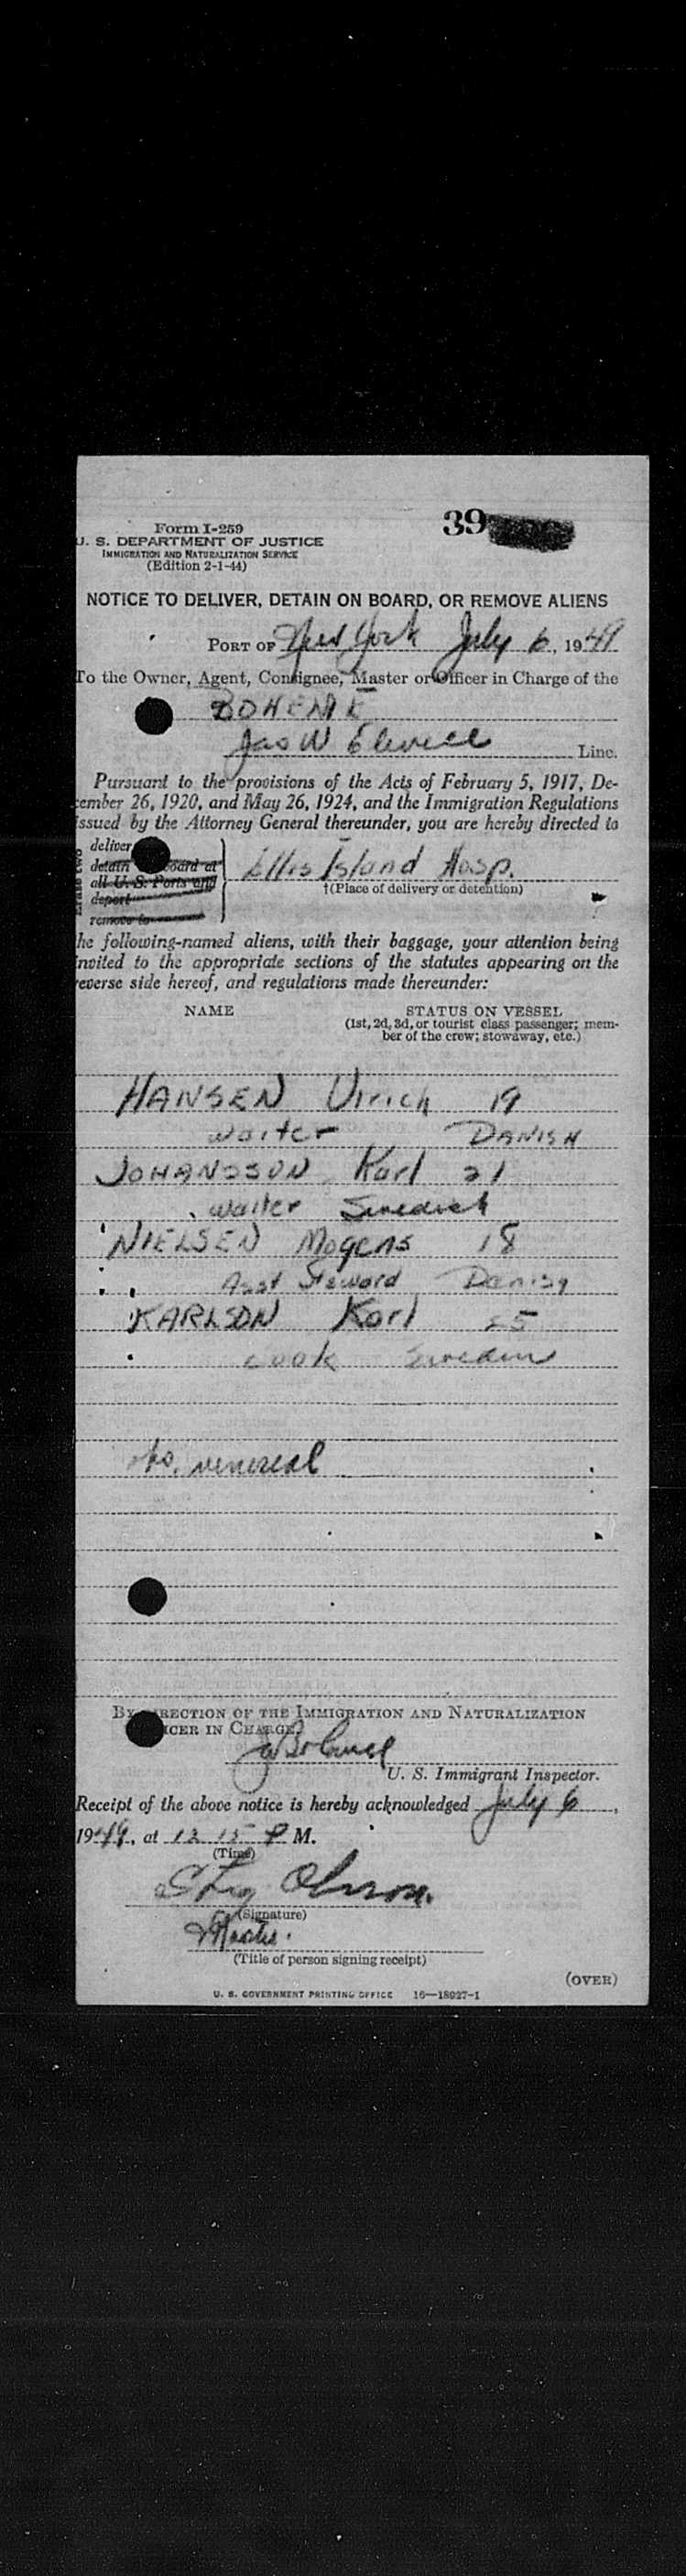 39
Form I-259
U. S. DEPARTMENT OF JUSTICE
IMMIGRATION AND NATURALIZATION SERVICE
(Edition 2-1-44)
NOTICE TO DELIVER, DETAIN ON BOARD, OR REMOVE ALIENS
PORT OF New York July 6, 1949
To the Owner, Agent, Consignee, Master or Officer in Charge of the
BOHEME
Jas W Elwell Line.
Pursuant to the provisions of the Acts of February 5, 1917, De-
cember 26, 1920, and May 26, 1924, and the Immigration Regulations
issued by the Attorney General thereunder, you are hereby directed to
deliver
detain board at
all U. S. Ports and
deport
remove to
Ellis Island Hosp.
†(Place of delivery or detention)
he following-named aliens, with their baggage, your attention being
invited to the appropriate sections of the statutes appearing on the
reverse side hereof, and regulations made thereunder:
NAME STATUS ON VESSEL
(1st, 2d, 3d, or tourist class passenger; mem-
ber of the crew; stowaway, etc.)
HANSEN Ulrich 19
waiter DANISH
JOHANSSON Karl 21
waiter Swedish
NIELSEN Mogens 18
Asst Steward Danish
KARLSON Karl 25
cook Sweden
venereal
BY DIRECTION OF THE IMMIGRATION AND NATURALIZATION
OFFICER IN CHARGE
U. S. Immigrant Inspector.
Receipt of the above notice is hereby acknowledged July 6,
1949, at 12 15 P M.
(Time)
Stig Olsson.
(Signature)
Master.
(Title of person signing receipt)
(OVER)
U. S. GOVERNMENT PRINTING OFFICE 16—18027-1